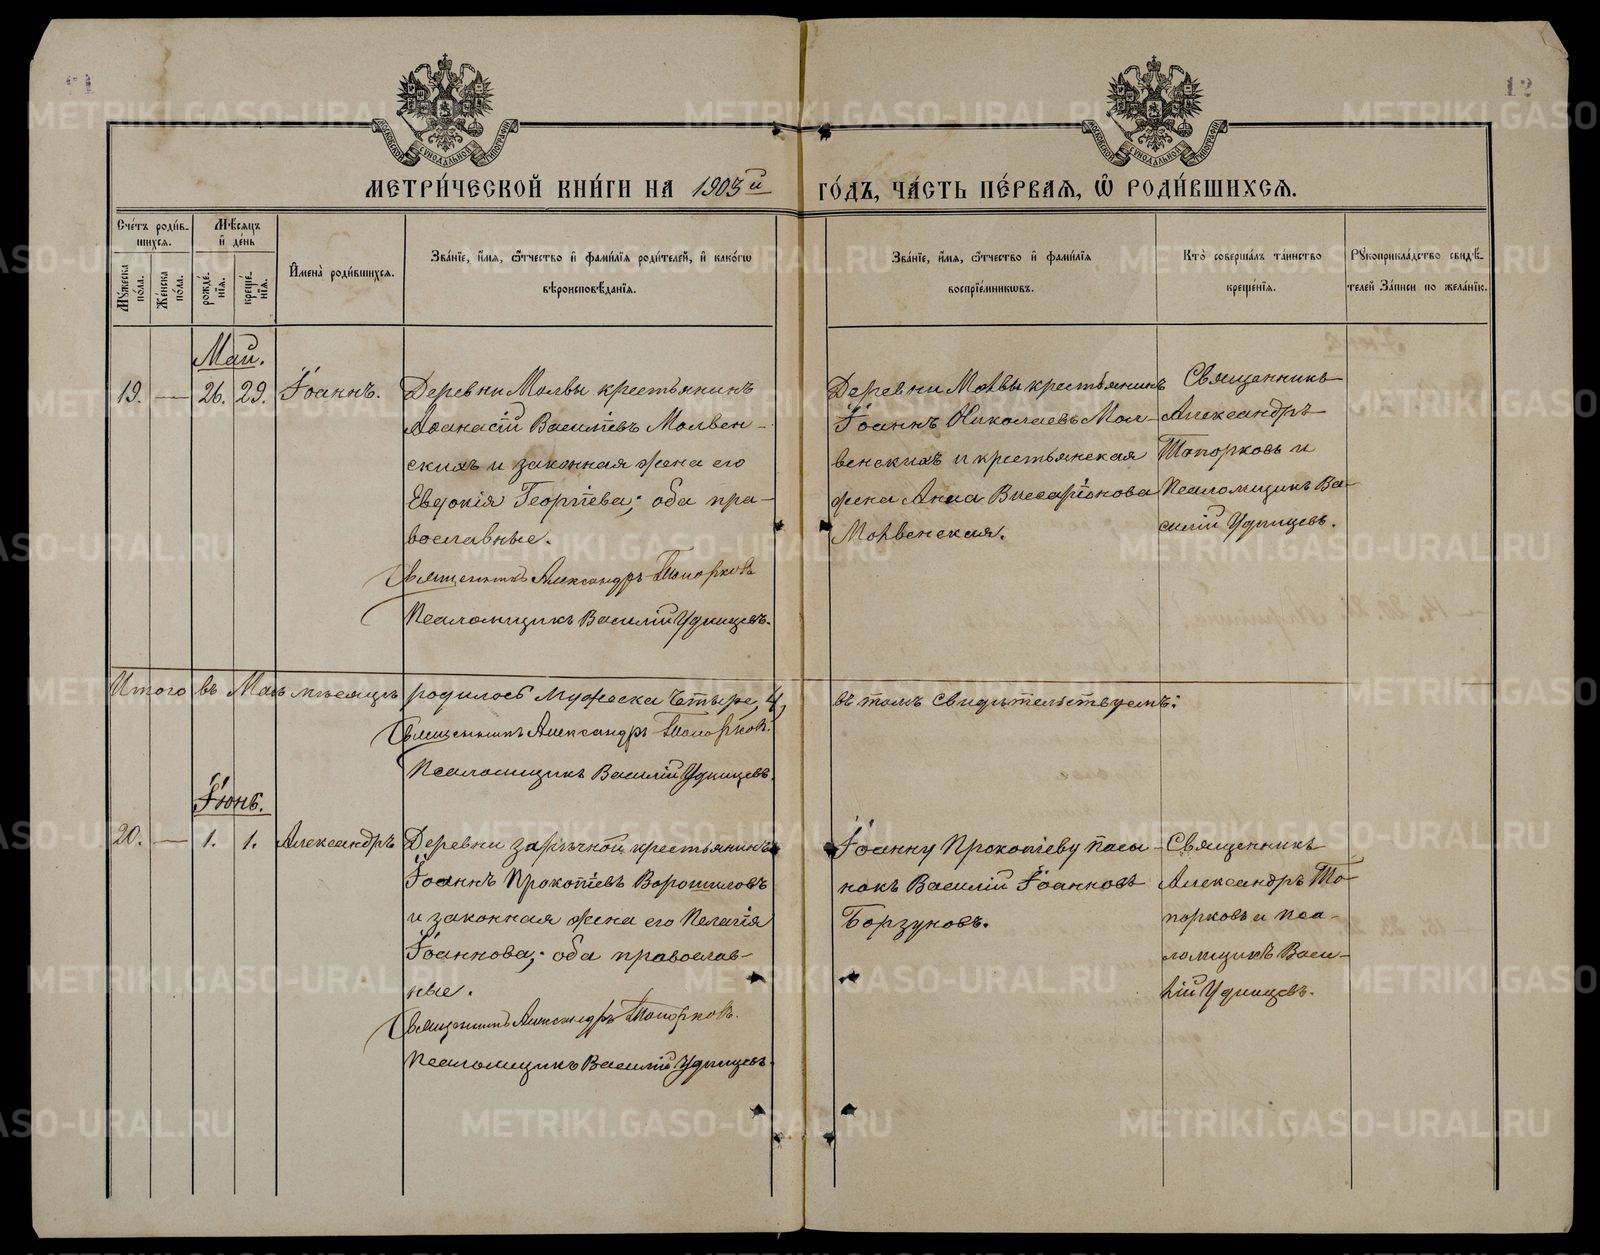 12
МЕТРИ́ЧЕСКОЙ КНИ́ГИ НА 1903й ГО́ДЪ, ЧА́СТЬ ПЕ́РВАЯ, Ѡ РОДИ́ВШИХСЯ.
Сче́тъ роди́в-
шихся.
Мѣ́сяцъ
и де́нь
Мꙋжеска по́ла.
Же́нска по́ла.
рожде́-
нїя.
креще́-
нїя.
Имена̀ роди́вшихся.
Зва́нїе, и́мя, ѻ́тчество и фами́лїя роди́телей, и како́гѡ
вѣроисповѣ́данїя.
Зва́нїе, и́мя, ѻ́тчество и фами́лїя
воспрїе́мникѡвъ.
Кто̀ соверша́лъ та́инство
креще́нїя.
Рꙋкоприкла́дство свидѣ́-
телей За́писи по жела́нїю.
Май.
19. — 26. 29. Іоаннъ.
Деревни Молвы крестьянинъ
Аѳанасій Василіевъ Молвен-
скихъ и законная жена его
Евдокія Георгіева; оба пра-
вославные.
Священникъ Александръ Топорковъ
Псаломщикъ Василій Удинцевъ.
Деревни Молвы крестьянинъ
Іоаннъ Николаевъ Мол-
венскихъ и крестьянская
жена Анна Виссаріонова
Молвенская.
Священникъ
Александръ
Топорковъ и
Псаломщикъ Ва-
силій Удинцевъ.
Итого въ Маѣ мѣсяцѣ родилось мужеска четыре, 4, въ томъ свидѣтельствуемъ:
Священникъ Александръ Топорковъ.
Псаломщикъ Василій Удинцевъ.
Іюнь.
20. — 1. 1. Александръ
Деревни Зарѣчной крестьянинъ
Іоаннъ Прокопіевъ Ворошиловъ
и законная жена его Пелагія
Іоаннова; оба православ-
ные.
Священникъ Александръ Топорковъ.
Псаломщикъ Василій Удинцевъ.
Іоанну Прокопіеву пасы-
нокъ Василій Іоанновъ
Борзуновъ.
Священникъ
Александръ То-
порковъ и Пса-
ломщикъ Васи-
лій Удинцевъ.
METRIKI.GASO-URAL.RU